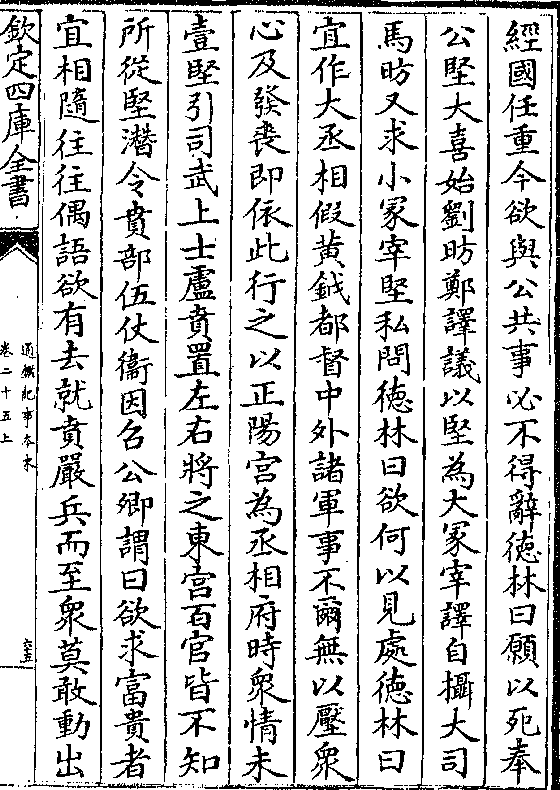 經國任重今欲與公共事必不得辭徳林曰願以死奉
公堅大喜始劉昉鄭譯議以堅為大冢宰譯自攝大司
馬昉又求小冢宰堅私問徳林曰欲何以見處徳林曰
宜作大丞相假黄鉞都督中外諸軍事不爾無以壓衆
心及發喪即依此行之以正陽宫為丞相府時衆情未
壹堅引司武上士盧賁置左右將之東宫百官皆不知
所從堅潛令賁部伍仗衞因召公卿謂曰欲求富貴者
宜相隨往往偶語欲有去就賁嚴兵而至衆莫敢動出
欽定四庫全書
通鑑紀事本末
卷二十五上
六十五